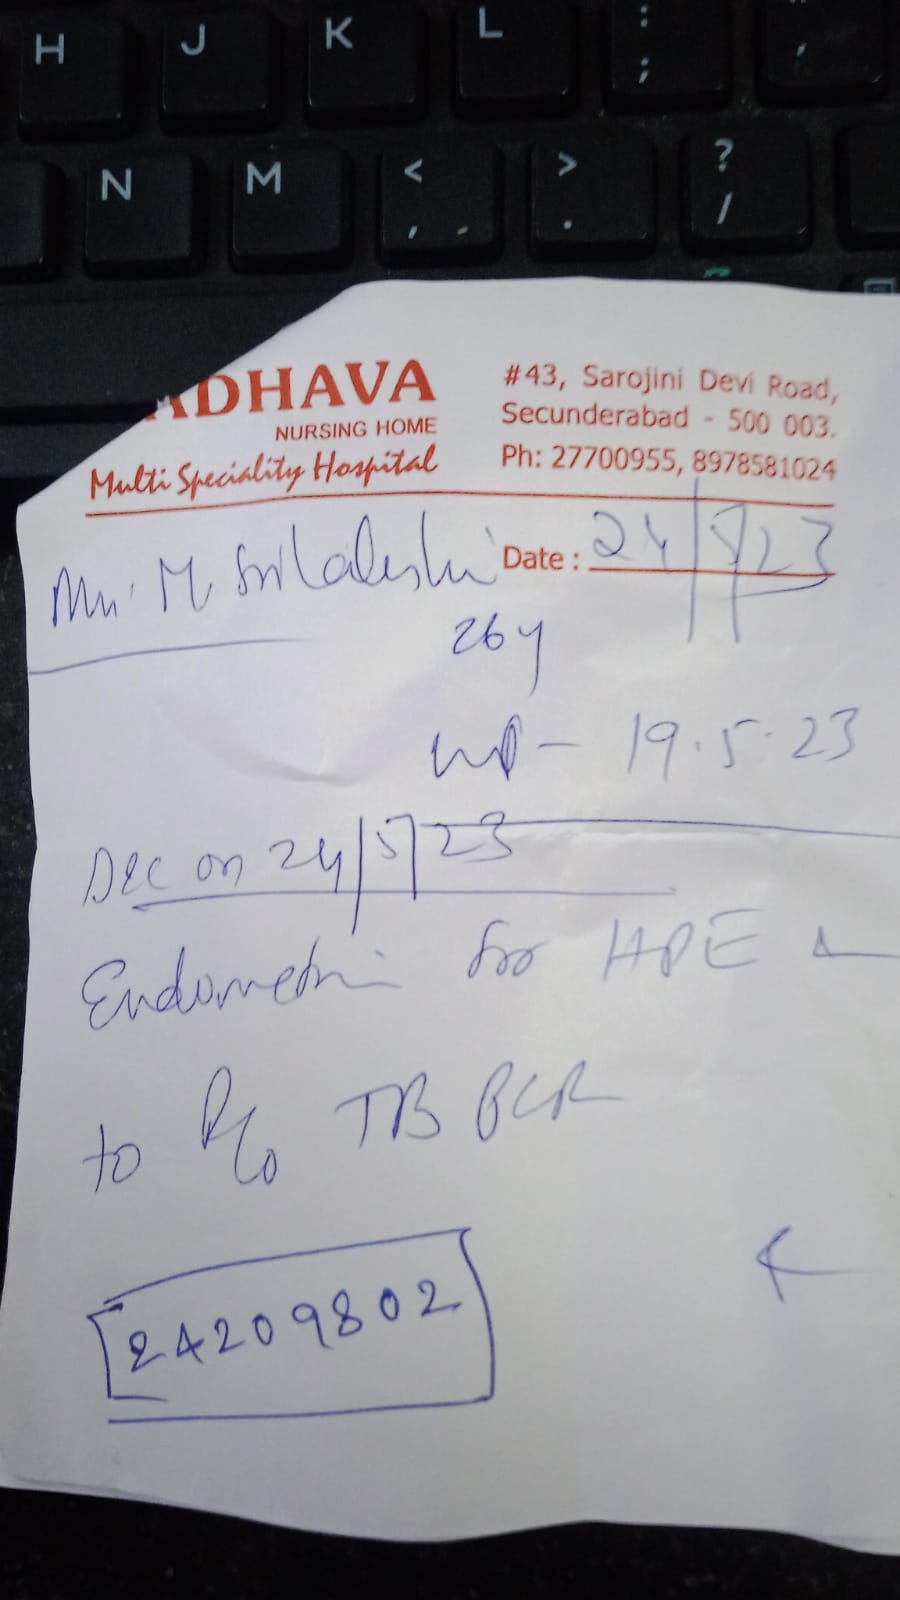 H J K L : ;
N M < , > . ? /
ADHAVA
NURSING HOME
Multi Speciality Hospital
#43, Sarojini Devi Road,
Secunderabad - 500 003.
Ph: 27700955, 8978581024
M Date : 24/5/23
26y
LMP - 19.5.23
D&C on 24/5/23
Endometri for HPE
to R/o TB PCR
24209802